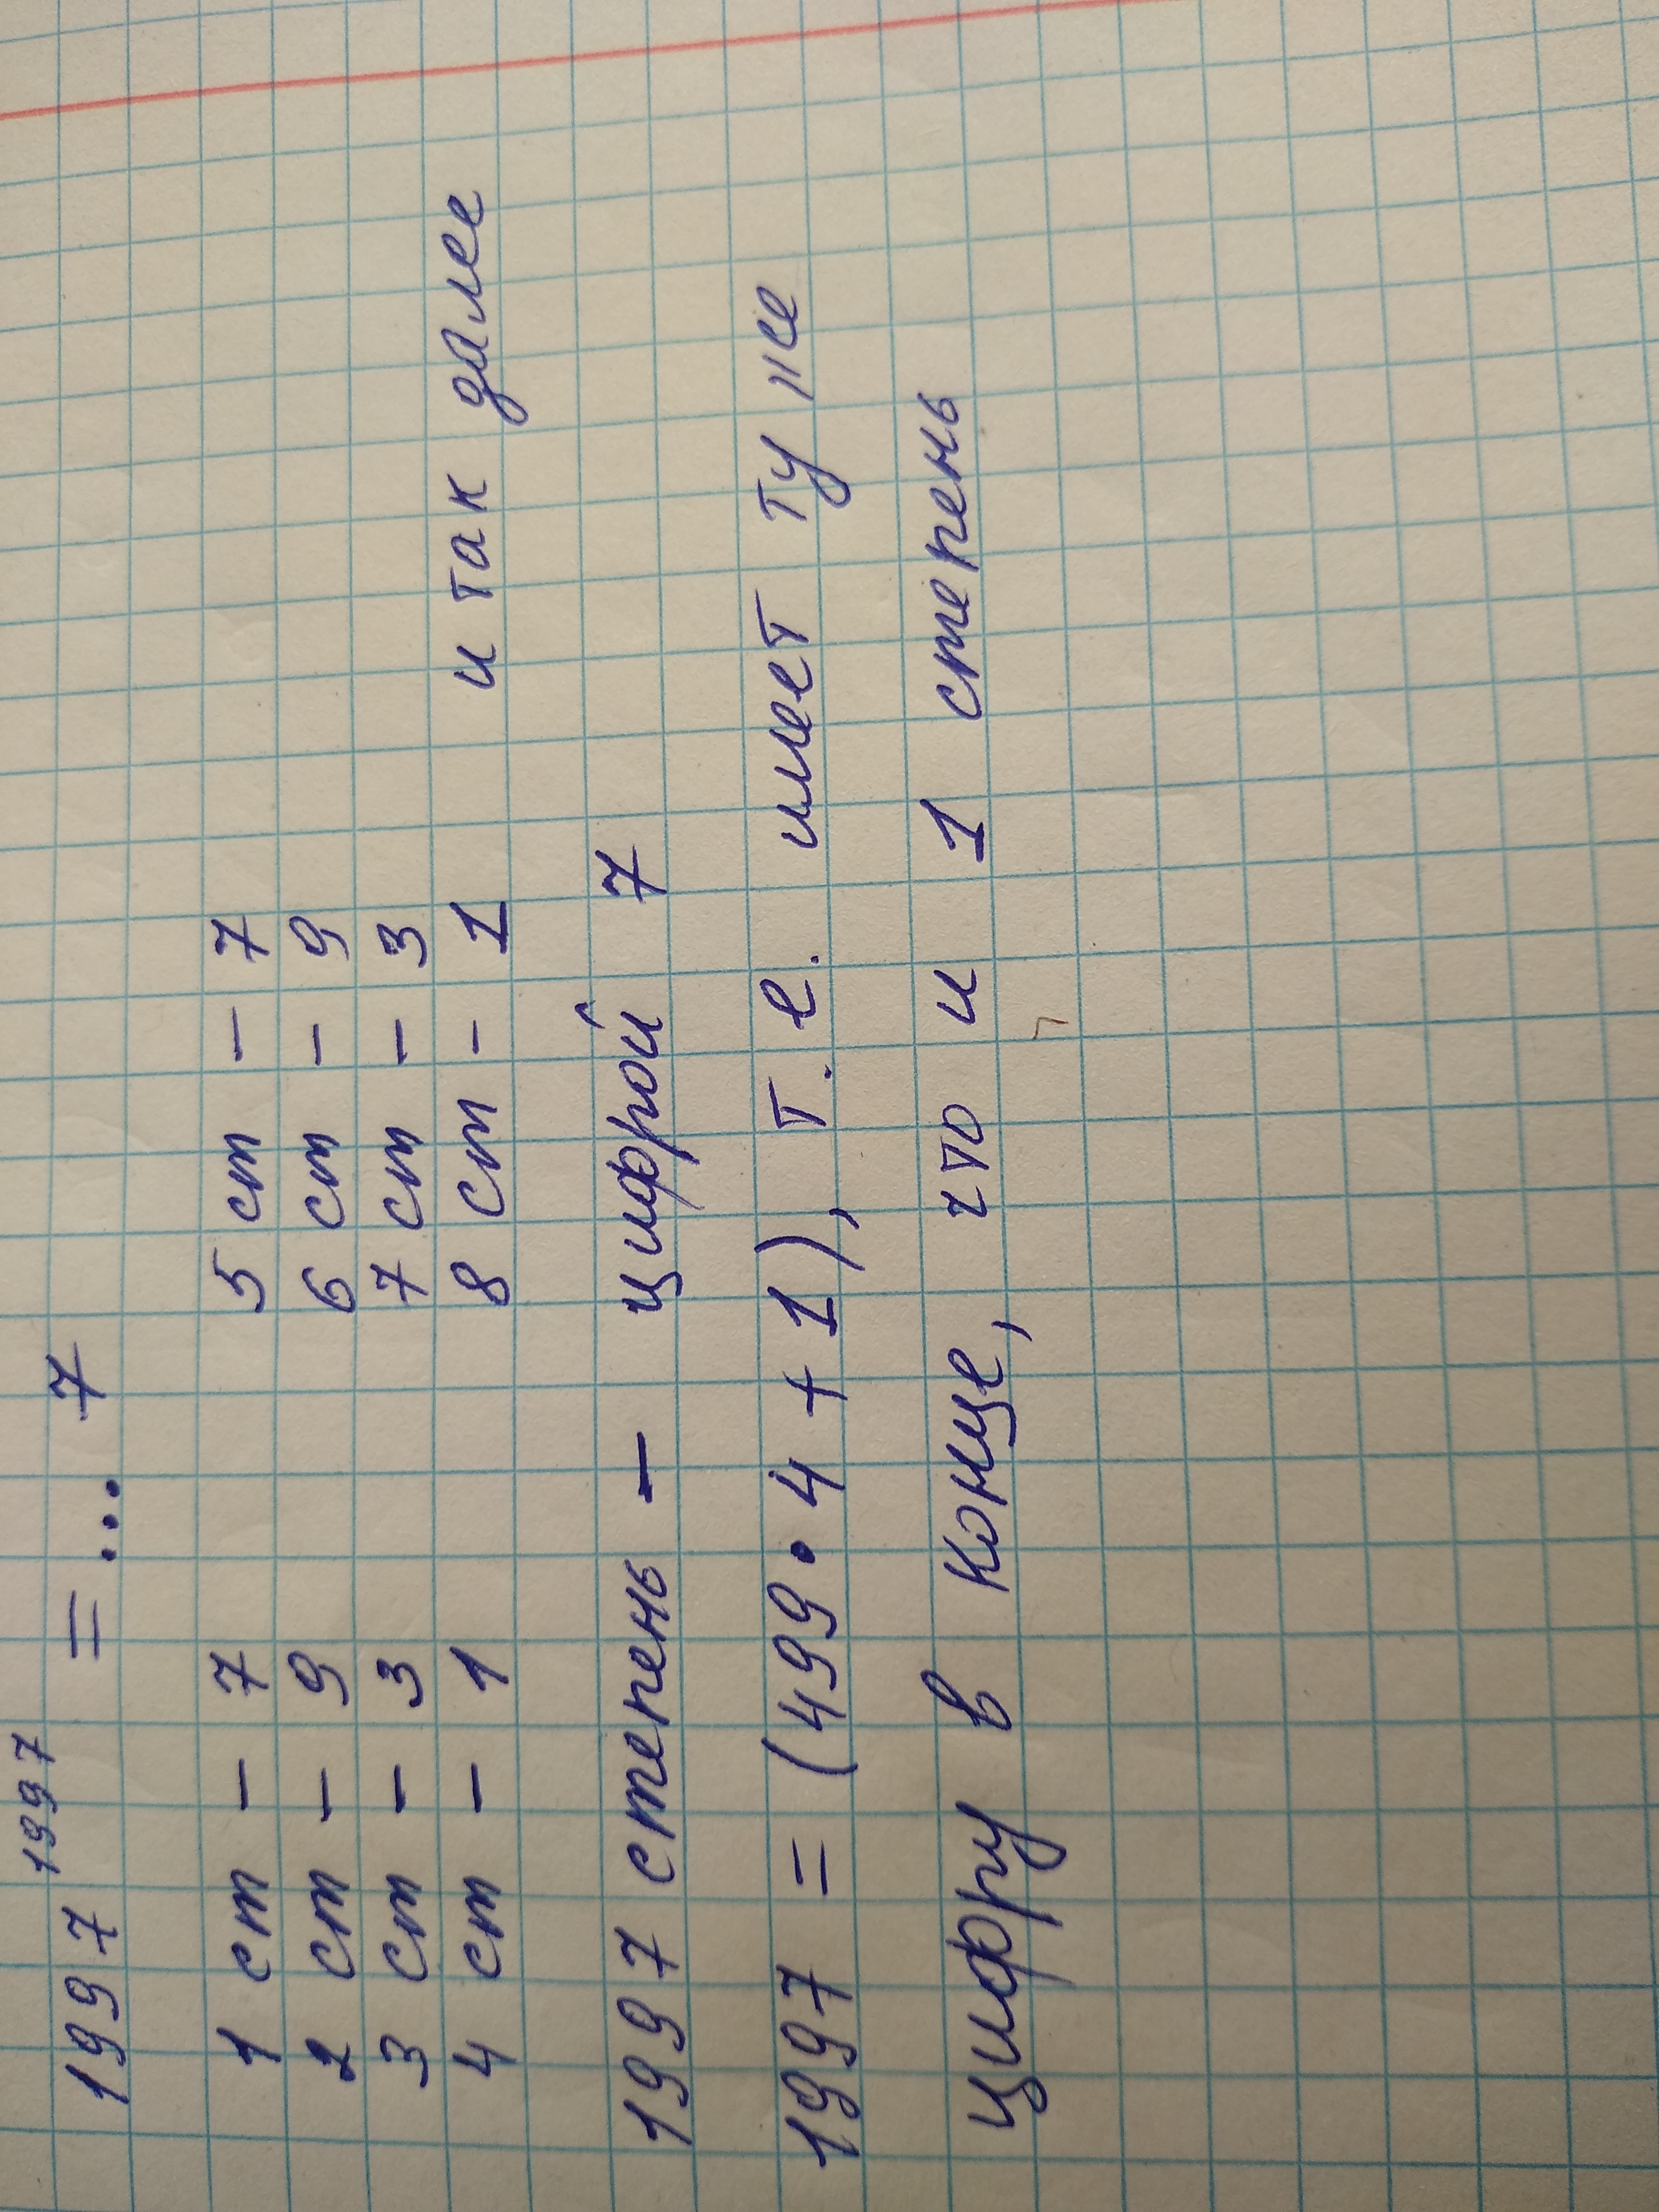 1997¹⁹⁹⁷ = ... 7
1 ст – 7 5 ст – 7
2 ст – 9 6 ст – 9
3 ст – 3 7 ст – 3
4 ст – 1 8 ст – 1 и так далее
1997 степень – цифрой 7
1997 = (499 • 4 + 1), т. е. имеет ту же
цифру в конце, что и 1 степень